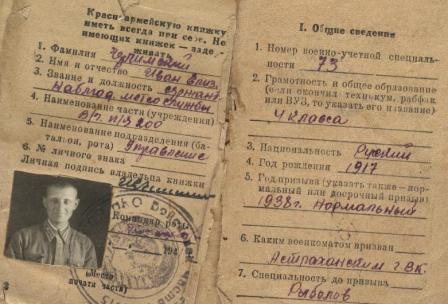 Красноармейскую книжку
иметь всегда при себе. Не
имеющих книжек — задер-
живать.
1. Фамилия
2. Имя и отчество Иван
3. Звание и должность сержант
4. Наименование части (учреждения)
5. Наименование подразделения (ба-
тальон, рота) Управление
6. № личного знака
Личная подпись владельца книжки
Командир
194
(Место
печати части)
I. Общие сведения
1. Номер военно-учетной специаль-
ности 73
2. Грамотность и общее образование
(если окончил техникум, рабфак
или ВУЗ, то указать его название)
4 класса
3. Национальность Русский
4. Год рождения 1917
5. Год призыва (указать также — нор-
мальный или досрочный призыв)
1938г. Нормальный
6. Каким военкоматом призван
Астраханским г.В.К.
7. Специальность до призыва
Рыболов